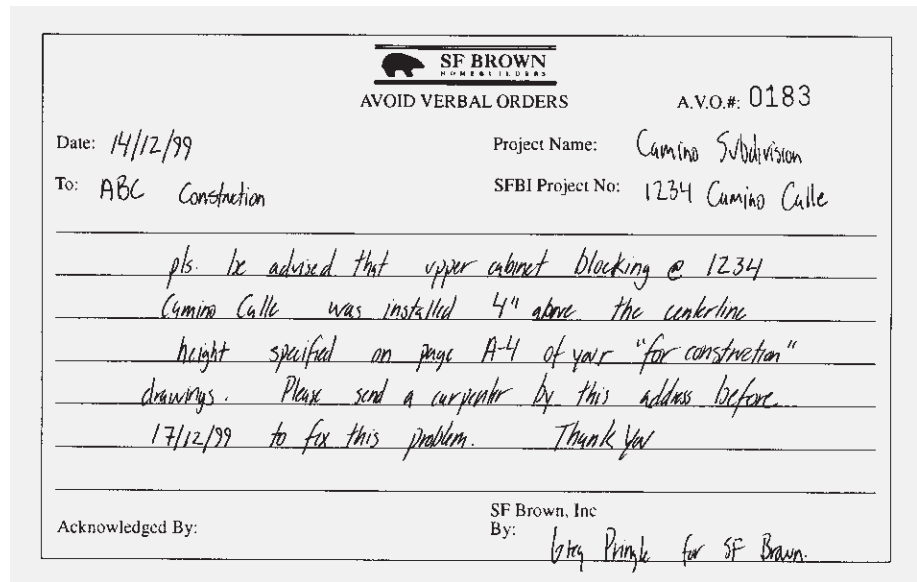 SF BROWN
HOMEBUILDERS
AVOID VERBAL ORDERS A.V.O.#: 0183
Date: 14/12/99 Project Name: Camino Subdivision
To: ABC Construction SFBI Project No: 1234 Camino Calle
pls. be advised that upper cabinet blocking @ 1234
Camino Calle was installed 4" above the centerline
height specified on page A-4 of your "for construction"
drawings. Please send a carpenter by this address before
17/12/99 to fix this problem. Thank You
SF Brown, Inc
Acknowledged By: By: Greg Pringle for SF Brown.